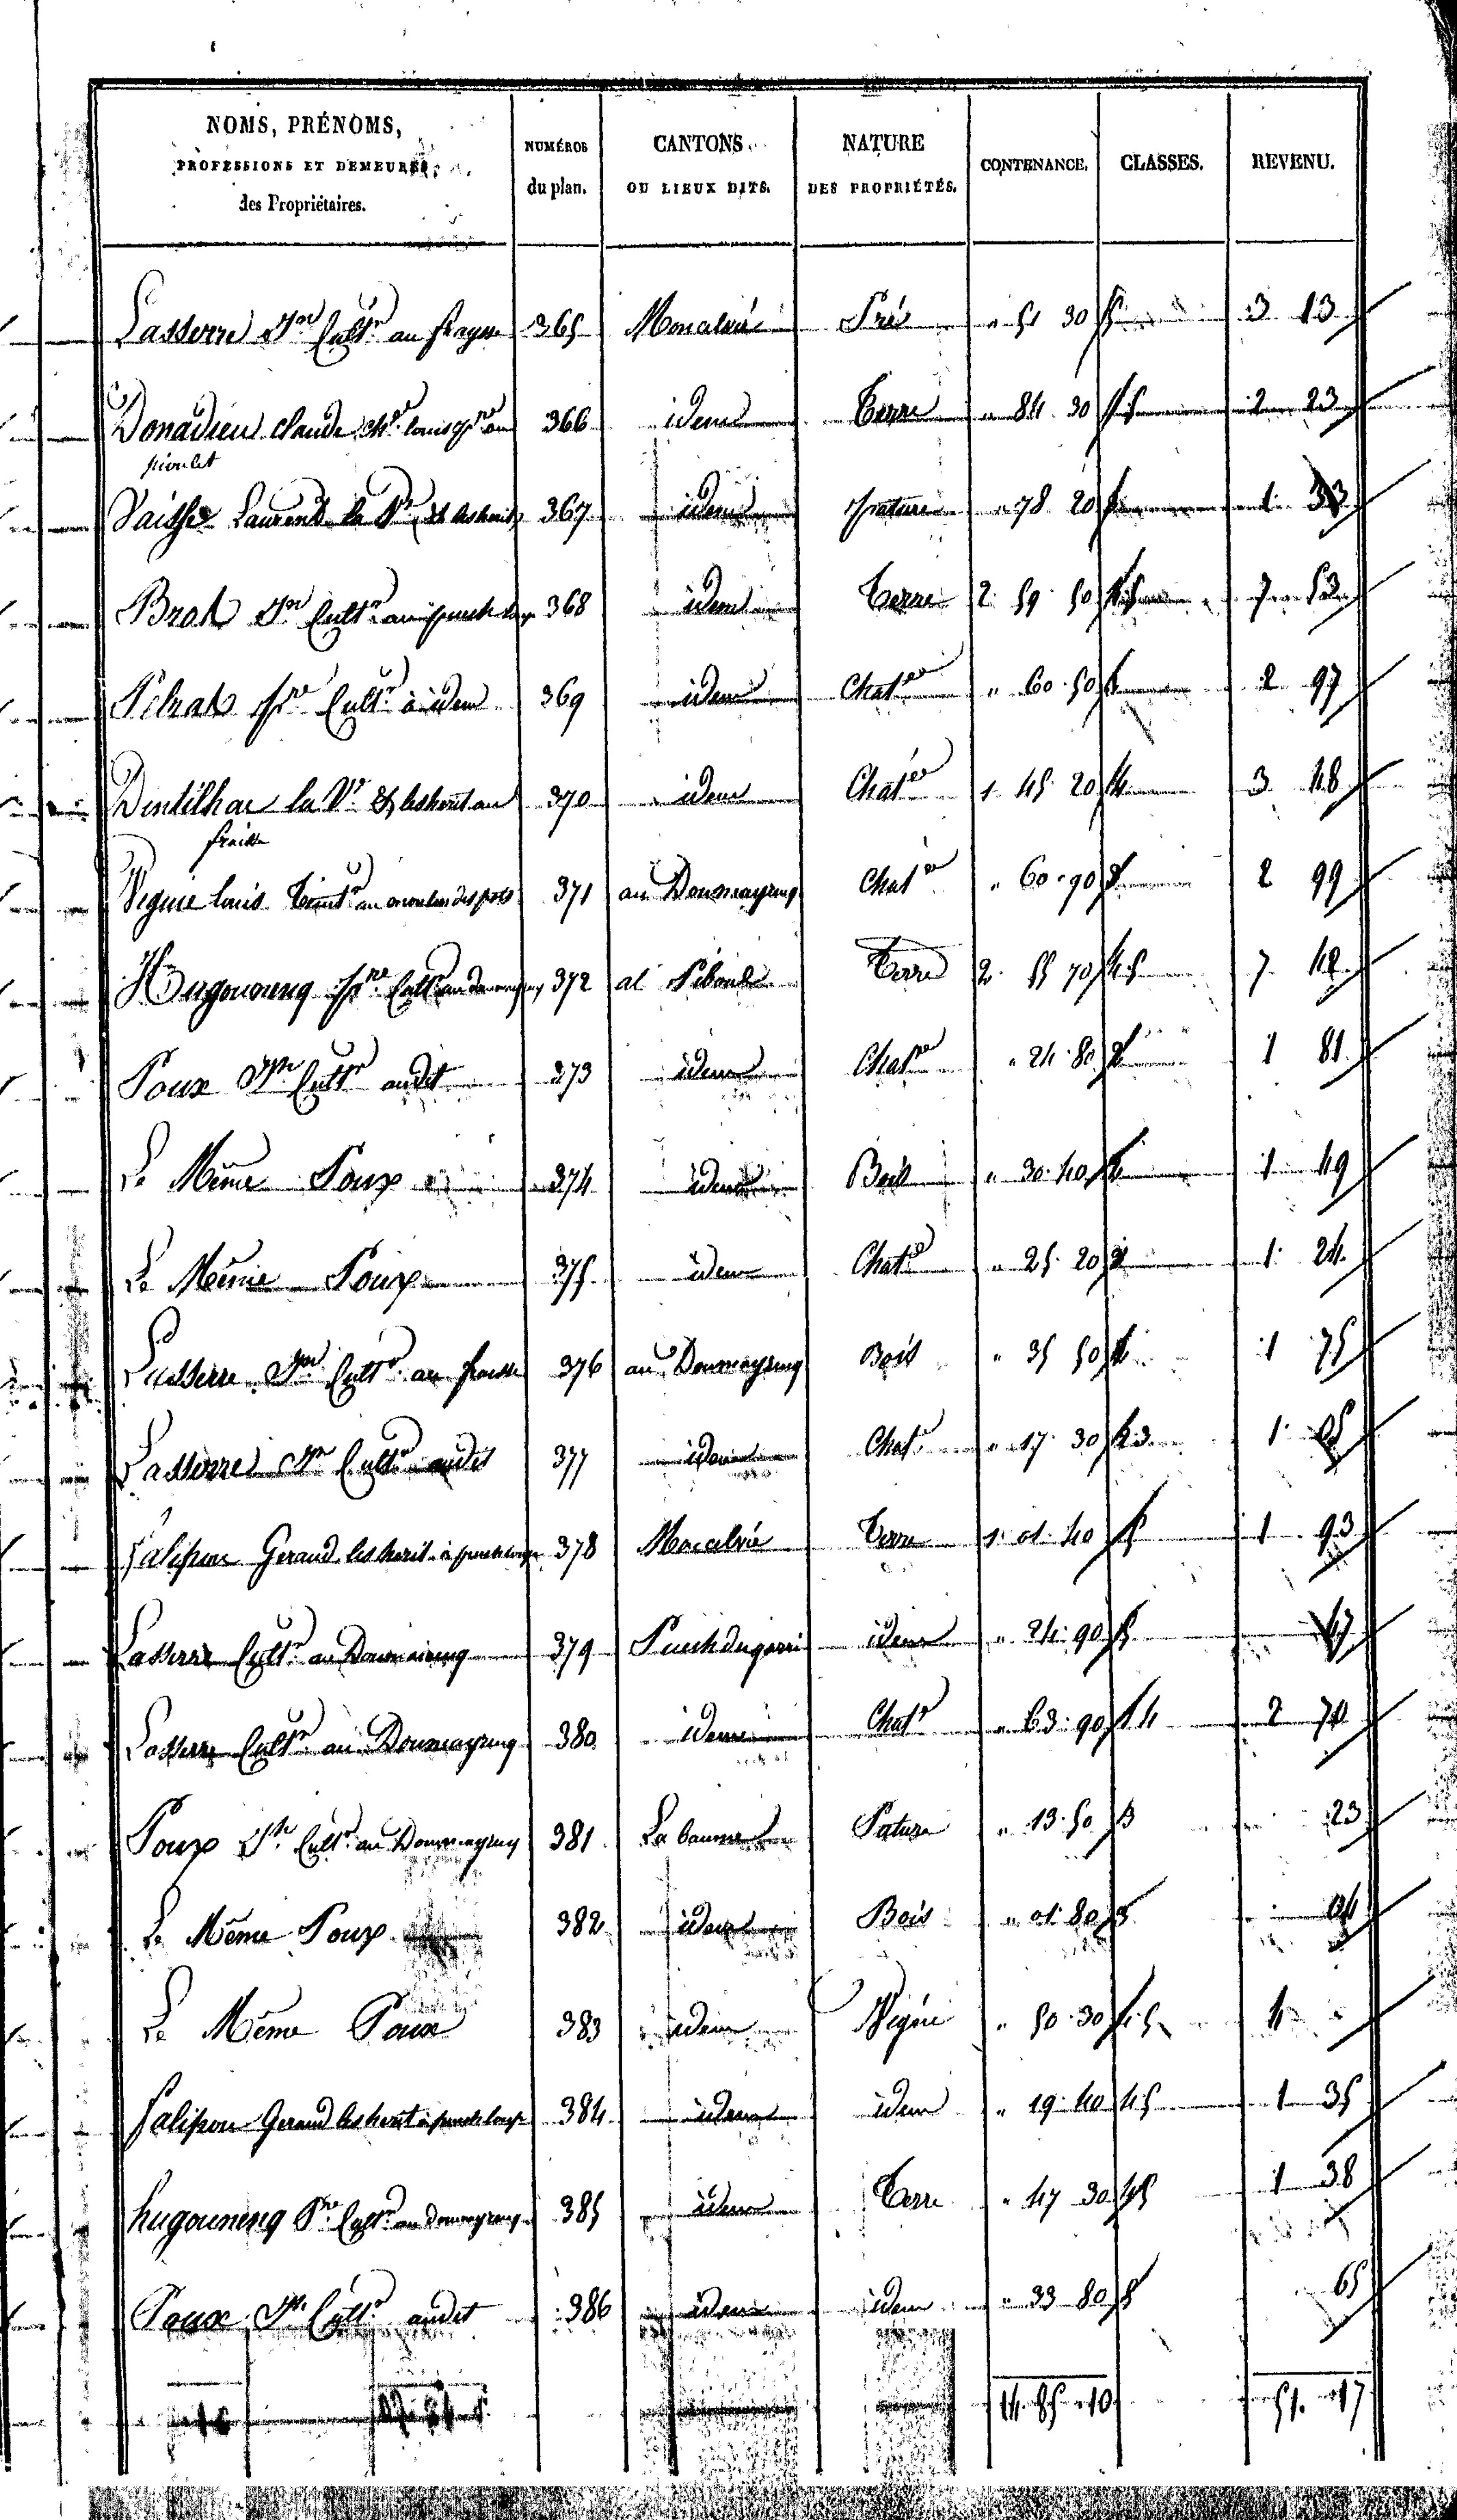 NOMS, PRÉNOMS, PROFESSIONS ET DEMEURES des Propriétaires. NUMÉROS du plan. CANTONS OU LIEUX DITS. NATURE DES PROPRIÉTÉS. CONTENANCE. CLASSES. REVENU.
Lasserre Jn Cultr au fraysse 365 Moncalvié Pré " 51 30 5 3 13
Donadieu claude chez louis au 366 idem Terre " 84 30 4.5 2 23
pioulet
Vaisse Laurens la Ve et les herits 367 idem pature " 78 20 1 33
Brot Jn Cultr au puech loup 368 idem Terre 2 59 50 4.5 7 53
Pélras Pre Cultr à idem 369 idem Chater " 60 50 2 97
Dintilhac la Ve et les herit au 370 idem Chater 1 45 20 4 3 48
fraisse
Vignie louis au moulin des pots 371 au Doumayrenq Chater " 60 90 2 99
Hugounenq Pre Cultr au doumayrenq 372 al Piboul Terre 2 55 70 4.5 7 42
Poux Jn Cultr audit 373 idem Chater " 24 80 2 1 81
Le Même Poux 374 idem Bois " 30 40 1 49
Le Même Poux 375 idem Chatr " 25 20 2 1 24
Lasserre Jn Cultr au fraisse 376 au Doumayrenq Bois " 35 50 1 75
Lasserre Jn Cultr audit 377 idem Chatr " 17 30 2.3 1
Salipou Geraud les herit à puech loup 378 Moncalvié Terre 1 01 40 5 1 93
Lasserre Cultr au Doumairenq 379 Puech dugarri idem " 24 90 5 47
Lasserre Cultr au Doumayrenq 380 idem Chatr " 63 90 2 70
Poux Jn Cultr au Doumayrenq 381 La baume Pature " 13 50 3 23
Le Même Poux 382 idem Bois " 01 80 3 04
Le Même Poux 383 idem Vigne " 50 30 4.5 4 "
Salipou Geraud les herit à puech loup 384 idem idem " 19 40 4.5 1 35
hugounenq Pre Cultr au doumayrenq 385 idem Terre " 47 30 4.5 1 38
Poux Jn Cultr audit 386 idem idem " 33 80 5 65
14 85 10 51 17